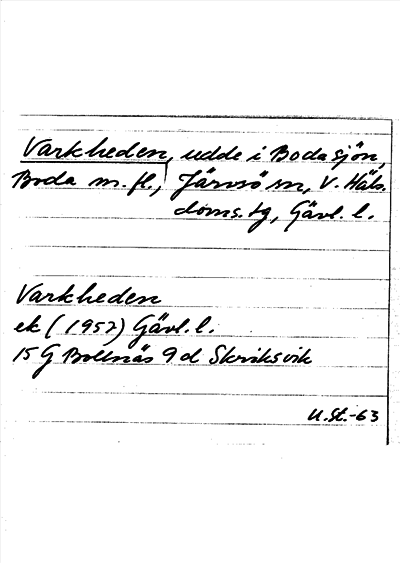 Varkheden, udde i Bodasjön,
Boda m. fl., Järvsö sn, V. Häls.
doms. tg, Gävl. l.
Varkheden
ek (1957) Gävl. l.
15 G Bollnäs 9 d Skriksvik
U. St. -63